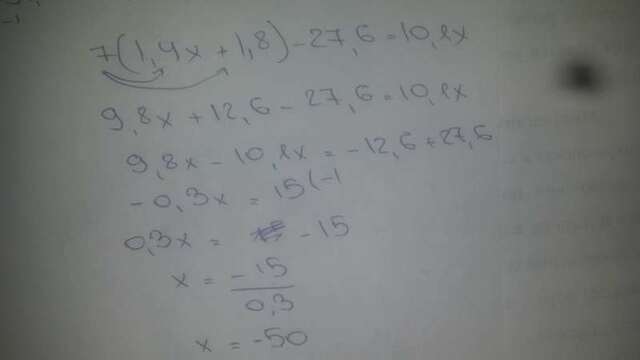 -1
7(1,4x+1,8)-27,6=10,1x
9,8x+12,6-27,6=10,1x
9,8x-10,1x=-12,6+27,6
-0,3x=15(-1
0,3x= -15
x= -15/0,3
x=-50